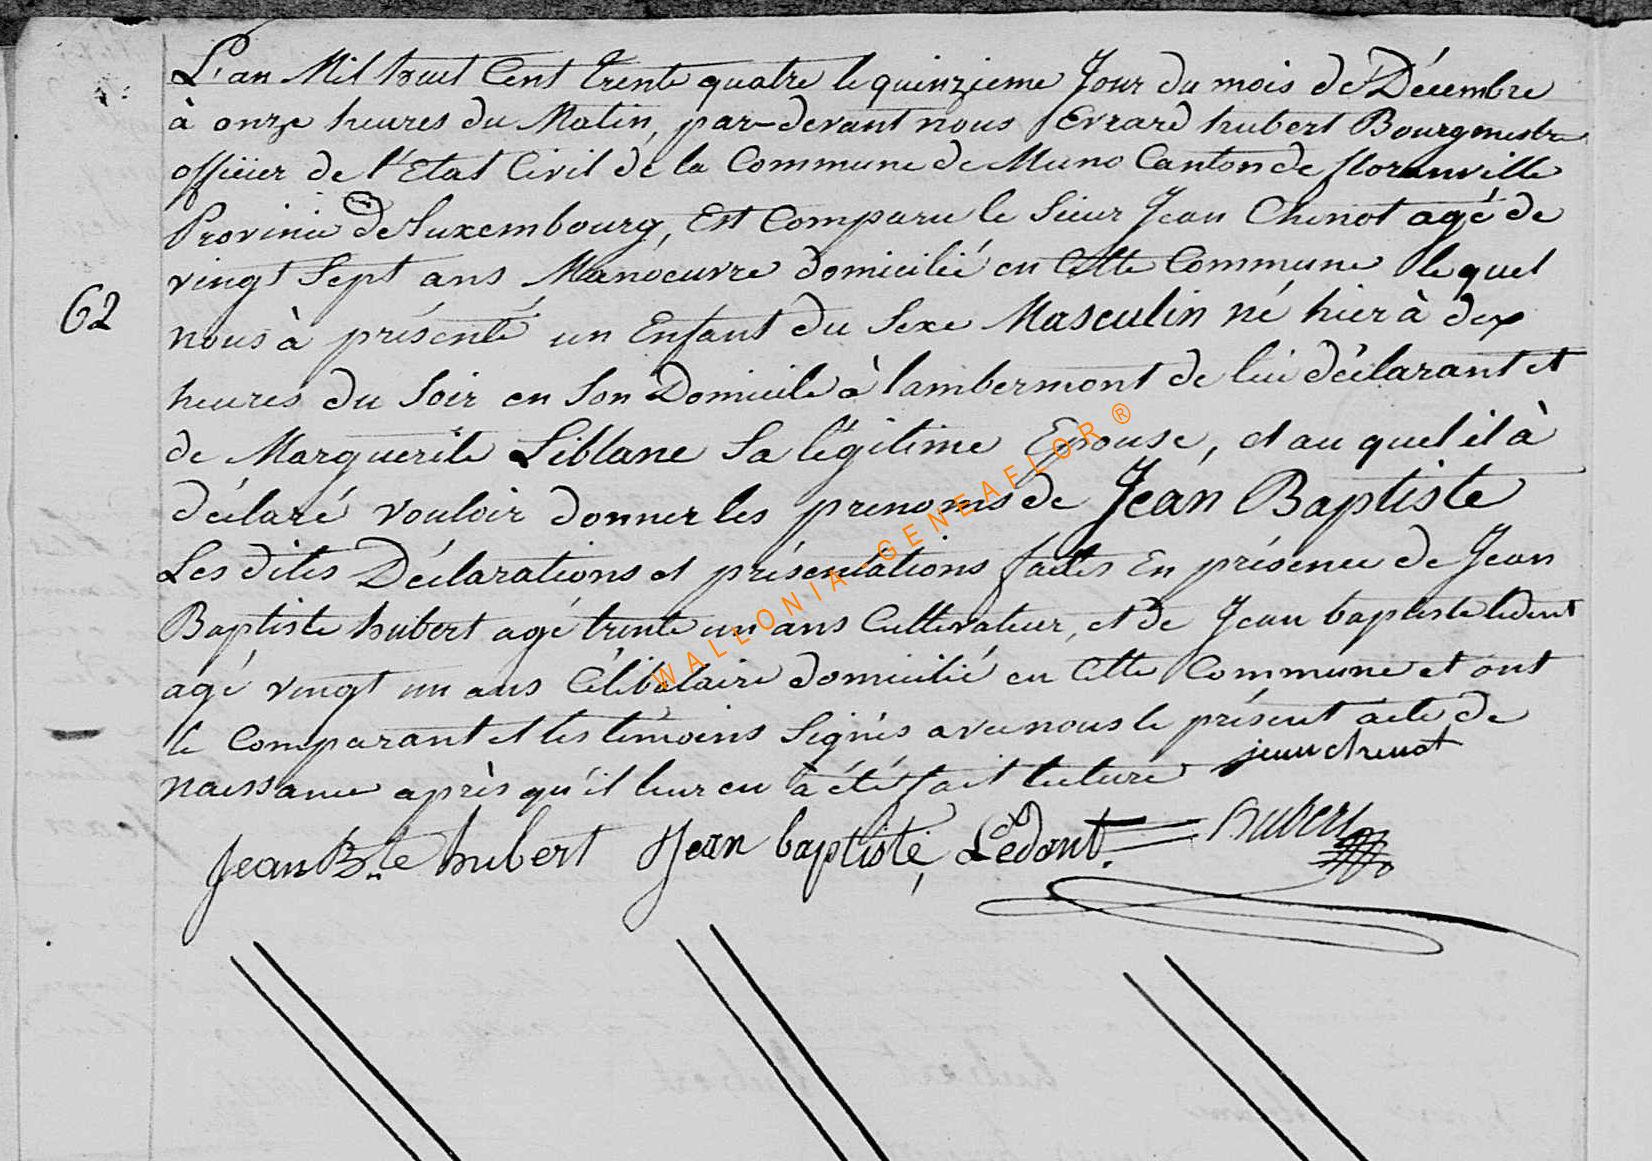 L'an Mil huit Cent trente quatre le quinzieme Jour du mois de Décembre
à onze heures du Matin, par-devant nous Evrard hubert Bourgmestre
officier de l'Etat Civil de la Commune de Muno Canton de florenville
Province de Luxembourg, Est Comparu le Sieur Jean Chenot agé de
vingt Sept ans Manoeuvre domicilié en Cette Commune lequel
62
nous à présenté un Enfant du Sexe Masculin né hier à dix
heures du Soir en Son Domicile à lambermont de lui déclarant et
de Marguerite Leblanc Sa légitime Epouse, et au quel il à
déclaré vouloir donner les prenoms de Jean Baptiste
Les dites Déclarations et présentations faites En présence de Jean
Baptiste hubert agé trente un ans Cultivateur, et de Jean baptiste ledent
agé vingt un ans Célibataire domicilié en Cette Commune et ont
le Comparant et les témoins Signés avec nous le présent acte de
naissance après qu'il leur en à été fait lecture jean chenot
Jean Bte hubert Jean baptiste Ledant. hubert
WALLONIA-GENEAFLOR®